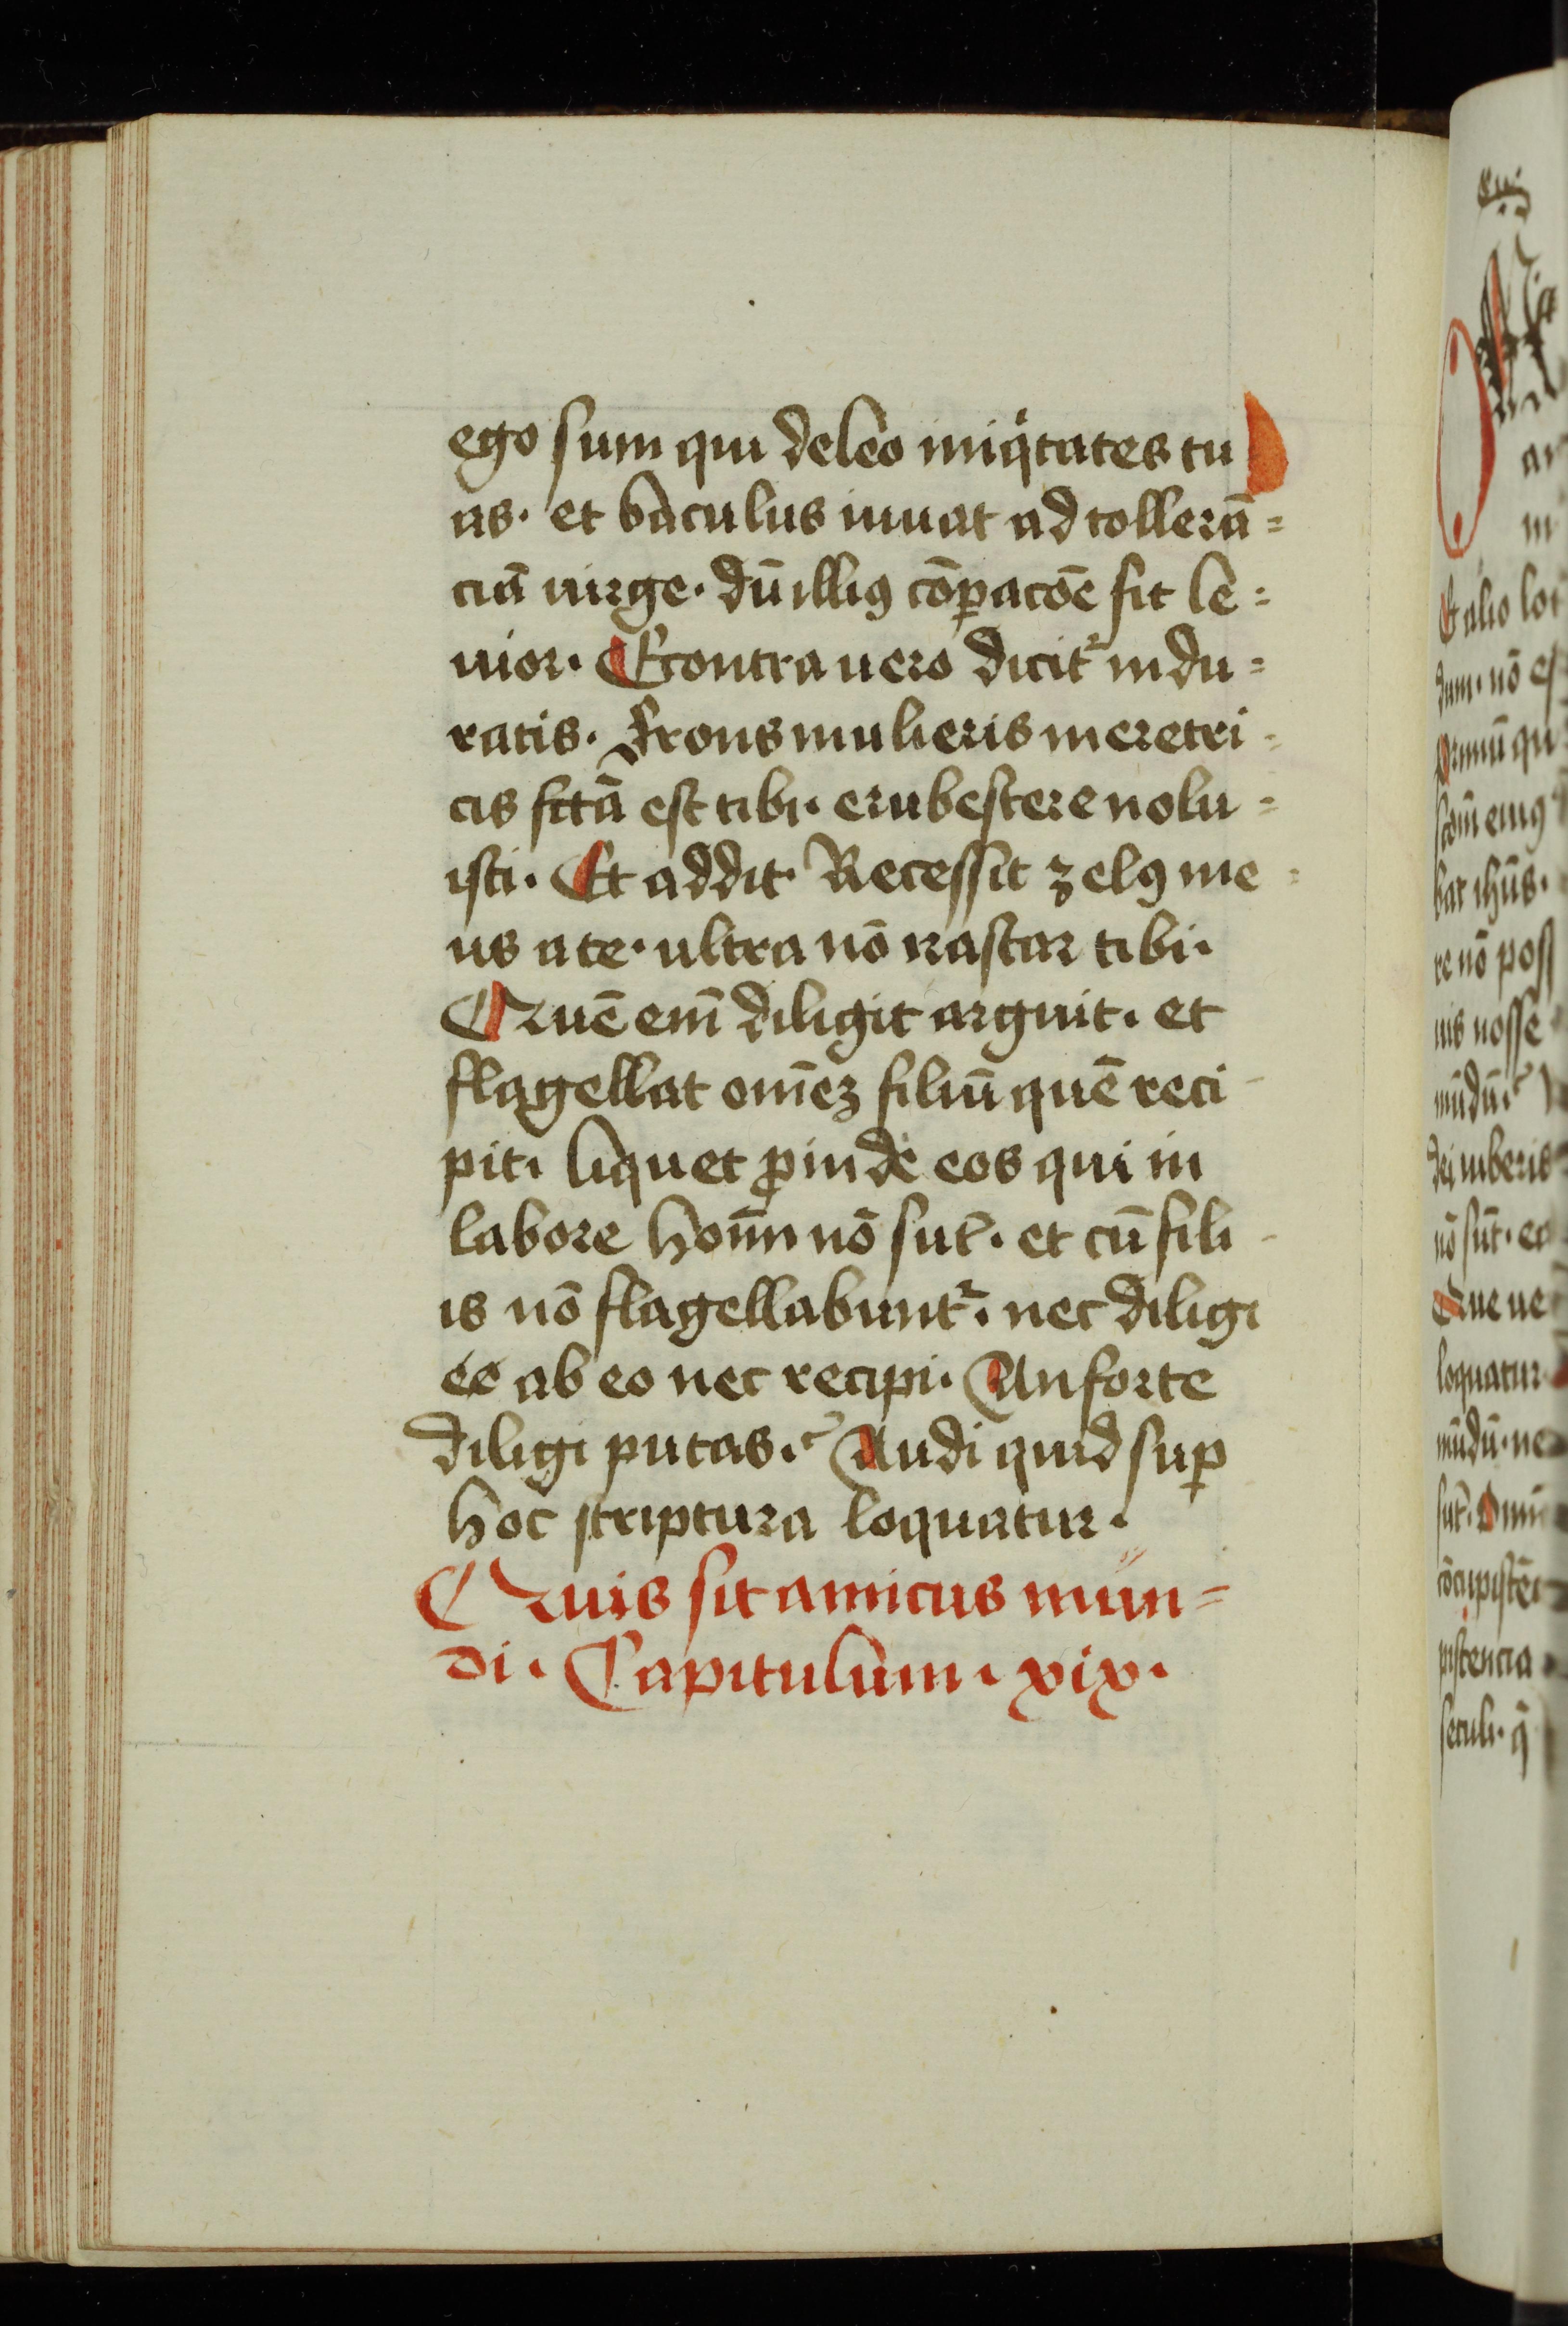 ego sum qui deleo iniqͥtates tu
as. et baculus iuuat ad tollerā=
ciā uirge. dū illiꝯ cōꝑacōe fit le=
uior. Econtra uero dicit᷑ indu=
ratis. Frons mulieris meretri=
cis fctā est tibi. erubescere nolu=
isti. Et addit. Recessit zelꝯ me=
us a te. ultra nō irascar tibi.
Quē eni̅ diligit arguit. et
flagellat om̄eꝫ filiū quē reci-
pit. liquet ꝓinde eos qui in
labore hoīm nō sūt. et cū fili-
is nō flagellabunt᷑. nec diligi
ēē ab eo nec recipi. An forte
diligi putas.? Audi quid suꝑ
hoc scriptura loquatur.
Quis sit amicus mun=
di. Capitulum. xix.
Et alio lo
dum. nō es
bat ih̄us.
re nō poss
uis nosse
mūdū.?
nō sūt. eo
Que ue
loquatur
mūdū. ne
sūt.
seculi. q̄